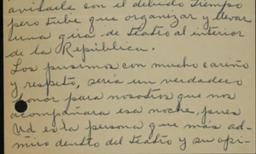 avisarle con el debido tiempo
pero tube que organizar y llevar
una gira de teatro al interior
de la República.
Los pusimos con mucho cariño
y respeto, sería un verdadero
honor para nosotros que nos
acompañara esa noche, pues
Ud es la persona que más ad-
miro dentro del teatro y su opi-